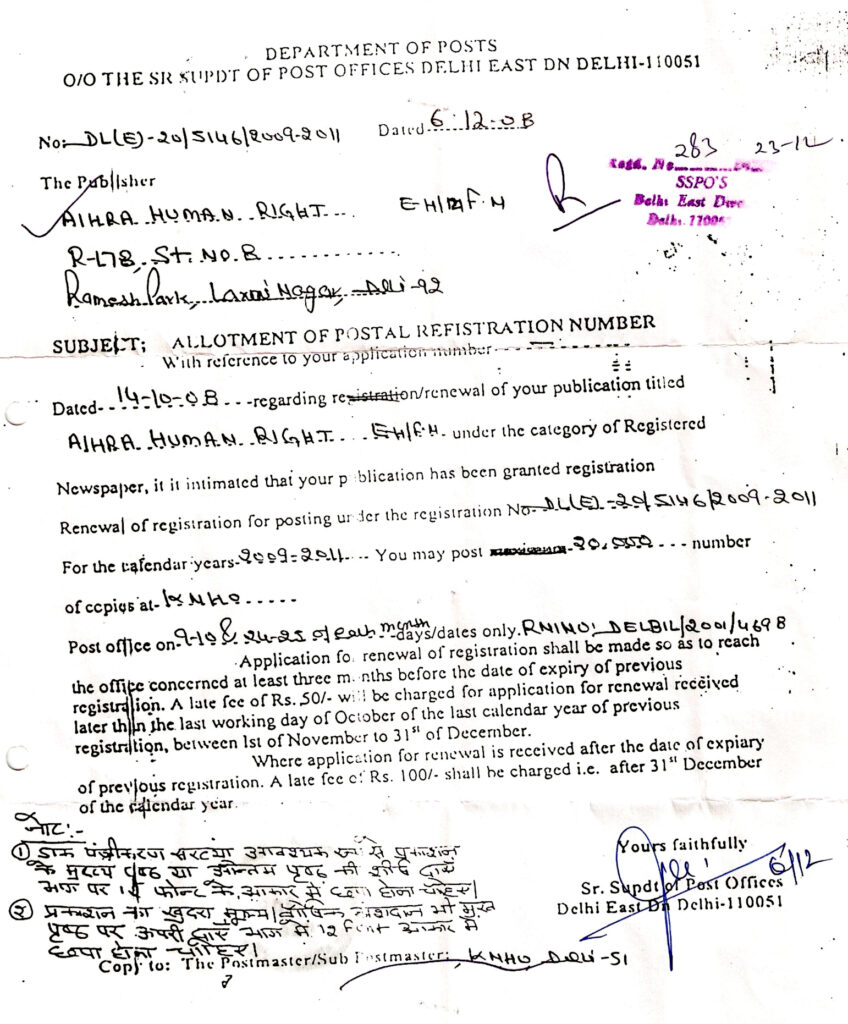 DEPARTMENT OF POSTS
O/O THE SR SUPDT OF POST OFFICES DELHI EAST DN DELHI-110051
No:- DL(E)-20/5146/2009-2011 Dated 6.12.08
283 23-12
Regd. No.
The Publisher
SSPO'S
Delhi East
Delhi. 11005
AIHRA HUMAN RIGHT E-H/F.N
R-178, St. No. 8
Ramesh Park, Laxmi Nagar, Delhi-92
SUBJECT; ALLOTMENT OF POSTAL REFISTRATION NUMBER
With reference to your application number
Dated- 14-10-08 -regarding registration/renewal of your publication titled
AIHRA HUMAN RIGHT E-H/F.N under the category of Registered
Newspaper, it it intimated that your publication has been granted registration
Renewal of registration for posting under the registration No- DL(E)-20/5146/2009-2011
For the calendar years-2009-2011 You may post 20,000 number
of copies at- KNHO
Post office on-9-10 & 24-25 of each month days/dates only. RNINO: DELBIL/2001/4698
Application for renewal of registration shall be made so as to reach
the office concerned at least three months before the date of expiry of previous
registration. A late fee of Rs. 50/- will be charged for application for renewal received
later than the last working day of October of the last calendar year of previous
registration, between 1st of November to 31st of December.
Where application for renewal is received after the date of expiary
of previous registration. A late fee of Rs. 100/- shall be charged i.e. after 31st December
of the calendar year.
नोट:-
① डाक पंजीकरण संख्या आवश्यक रूप से प्रकाशन
के मुख्य पृष्ठ या अन्तिम पृष्ठ की शीर्ष
भाग पर 12 फोन्ट के आकार में छपा होना चाहिए।
② प्रकाशन का खुदरा मूल्य/वार्षिक भी मुख्य
पृष्ठ पर ऊपरी भाग में 12 font आकार में
छपा होना चाहिए।
Yours faithfully
6/12
Sr. Supdt of Post Offices
Delhi East Dn Delhi-110051
Copy to: The Postmaster/Sub Postmaster: KNHO, Delhi-51